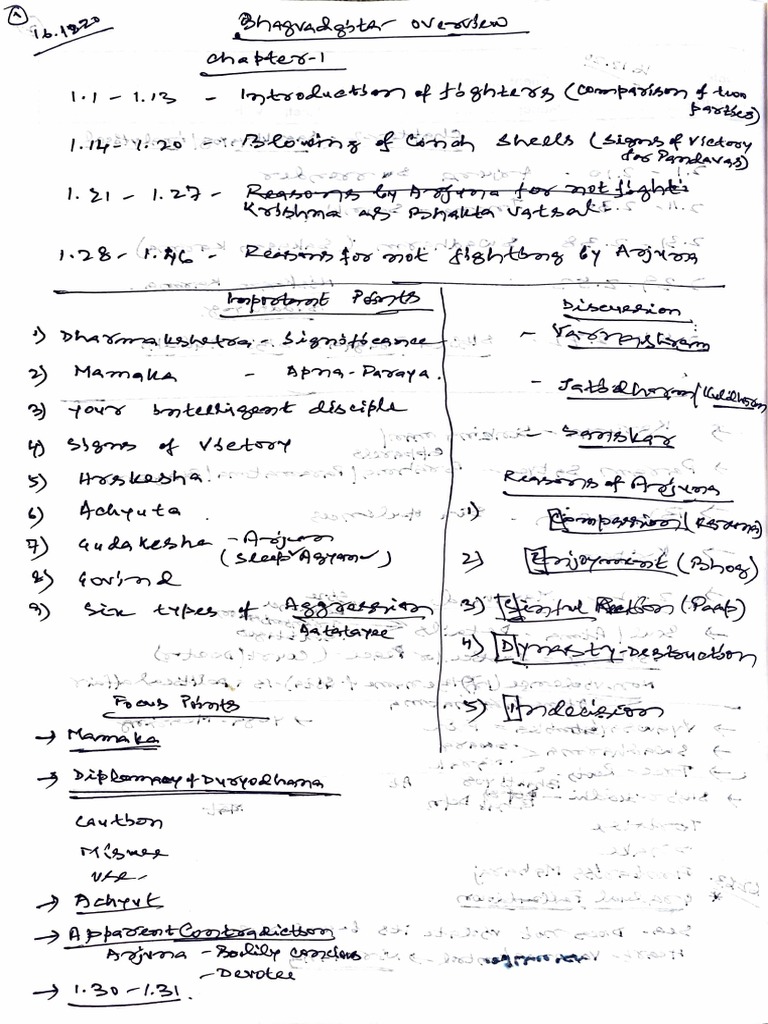 A
16.12.20
Bhagvadgita overview
Chapter-1
1.1 - 1.13 - Introduction of fighters (Comparison of two parties)
1.14 - 1.20 - Blowing of Conch Shells (Signs of Victory for Pandavas)
1.21 - 1.27 - Reasons by Arjuna for not fighti
Krishna as Bhakta Vatsal
1.28 - 1.46 - Reasons for not fighting by Arjuna
Important Points
1) Dharmakshetra - Significance
2) Mamaka - Apna-Paraya.
3) Your intelligent disciple
4) Signs of Victory
5) Hrskesha
6) Achyuta
7) Gudakesha - Arjun
(Sleep Agyan)
8) Govind
9) Six types of Aggression
Aatatayee
Focus Points
→ Mamaka
→ Diplomacy of Duryodhana
Caution
Misuse
Use
→ Achyut
→ Apparent Contradiction
Arjuna - Bodily concious
- Devotee
→ 1.30 - 1.31
Discussion
- Varnashram
- Jatidharm/Kuldharm
- Sanskar
Reasons of Arjuna
1) Compassion (Karuna)
2) Enjoyment (Bhog)
3) Sinful Reaction (Paap)
4) Dynasty-Destruction
5) Indecision